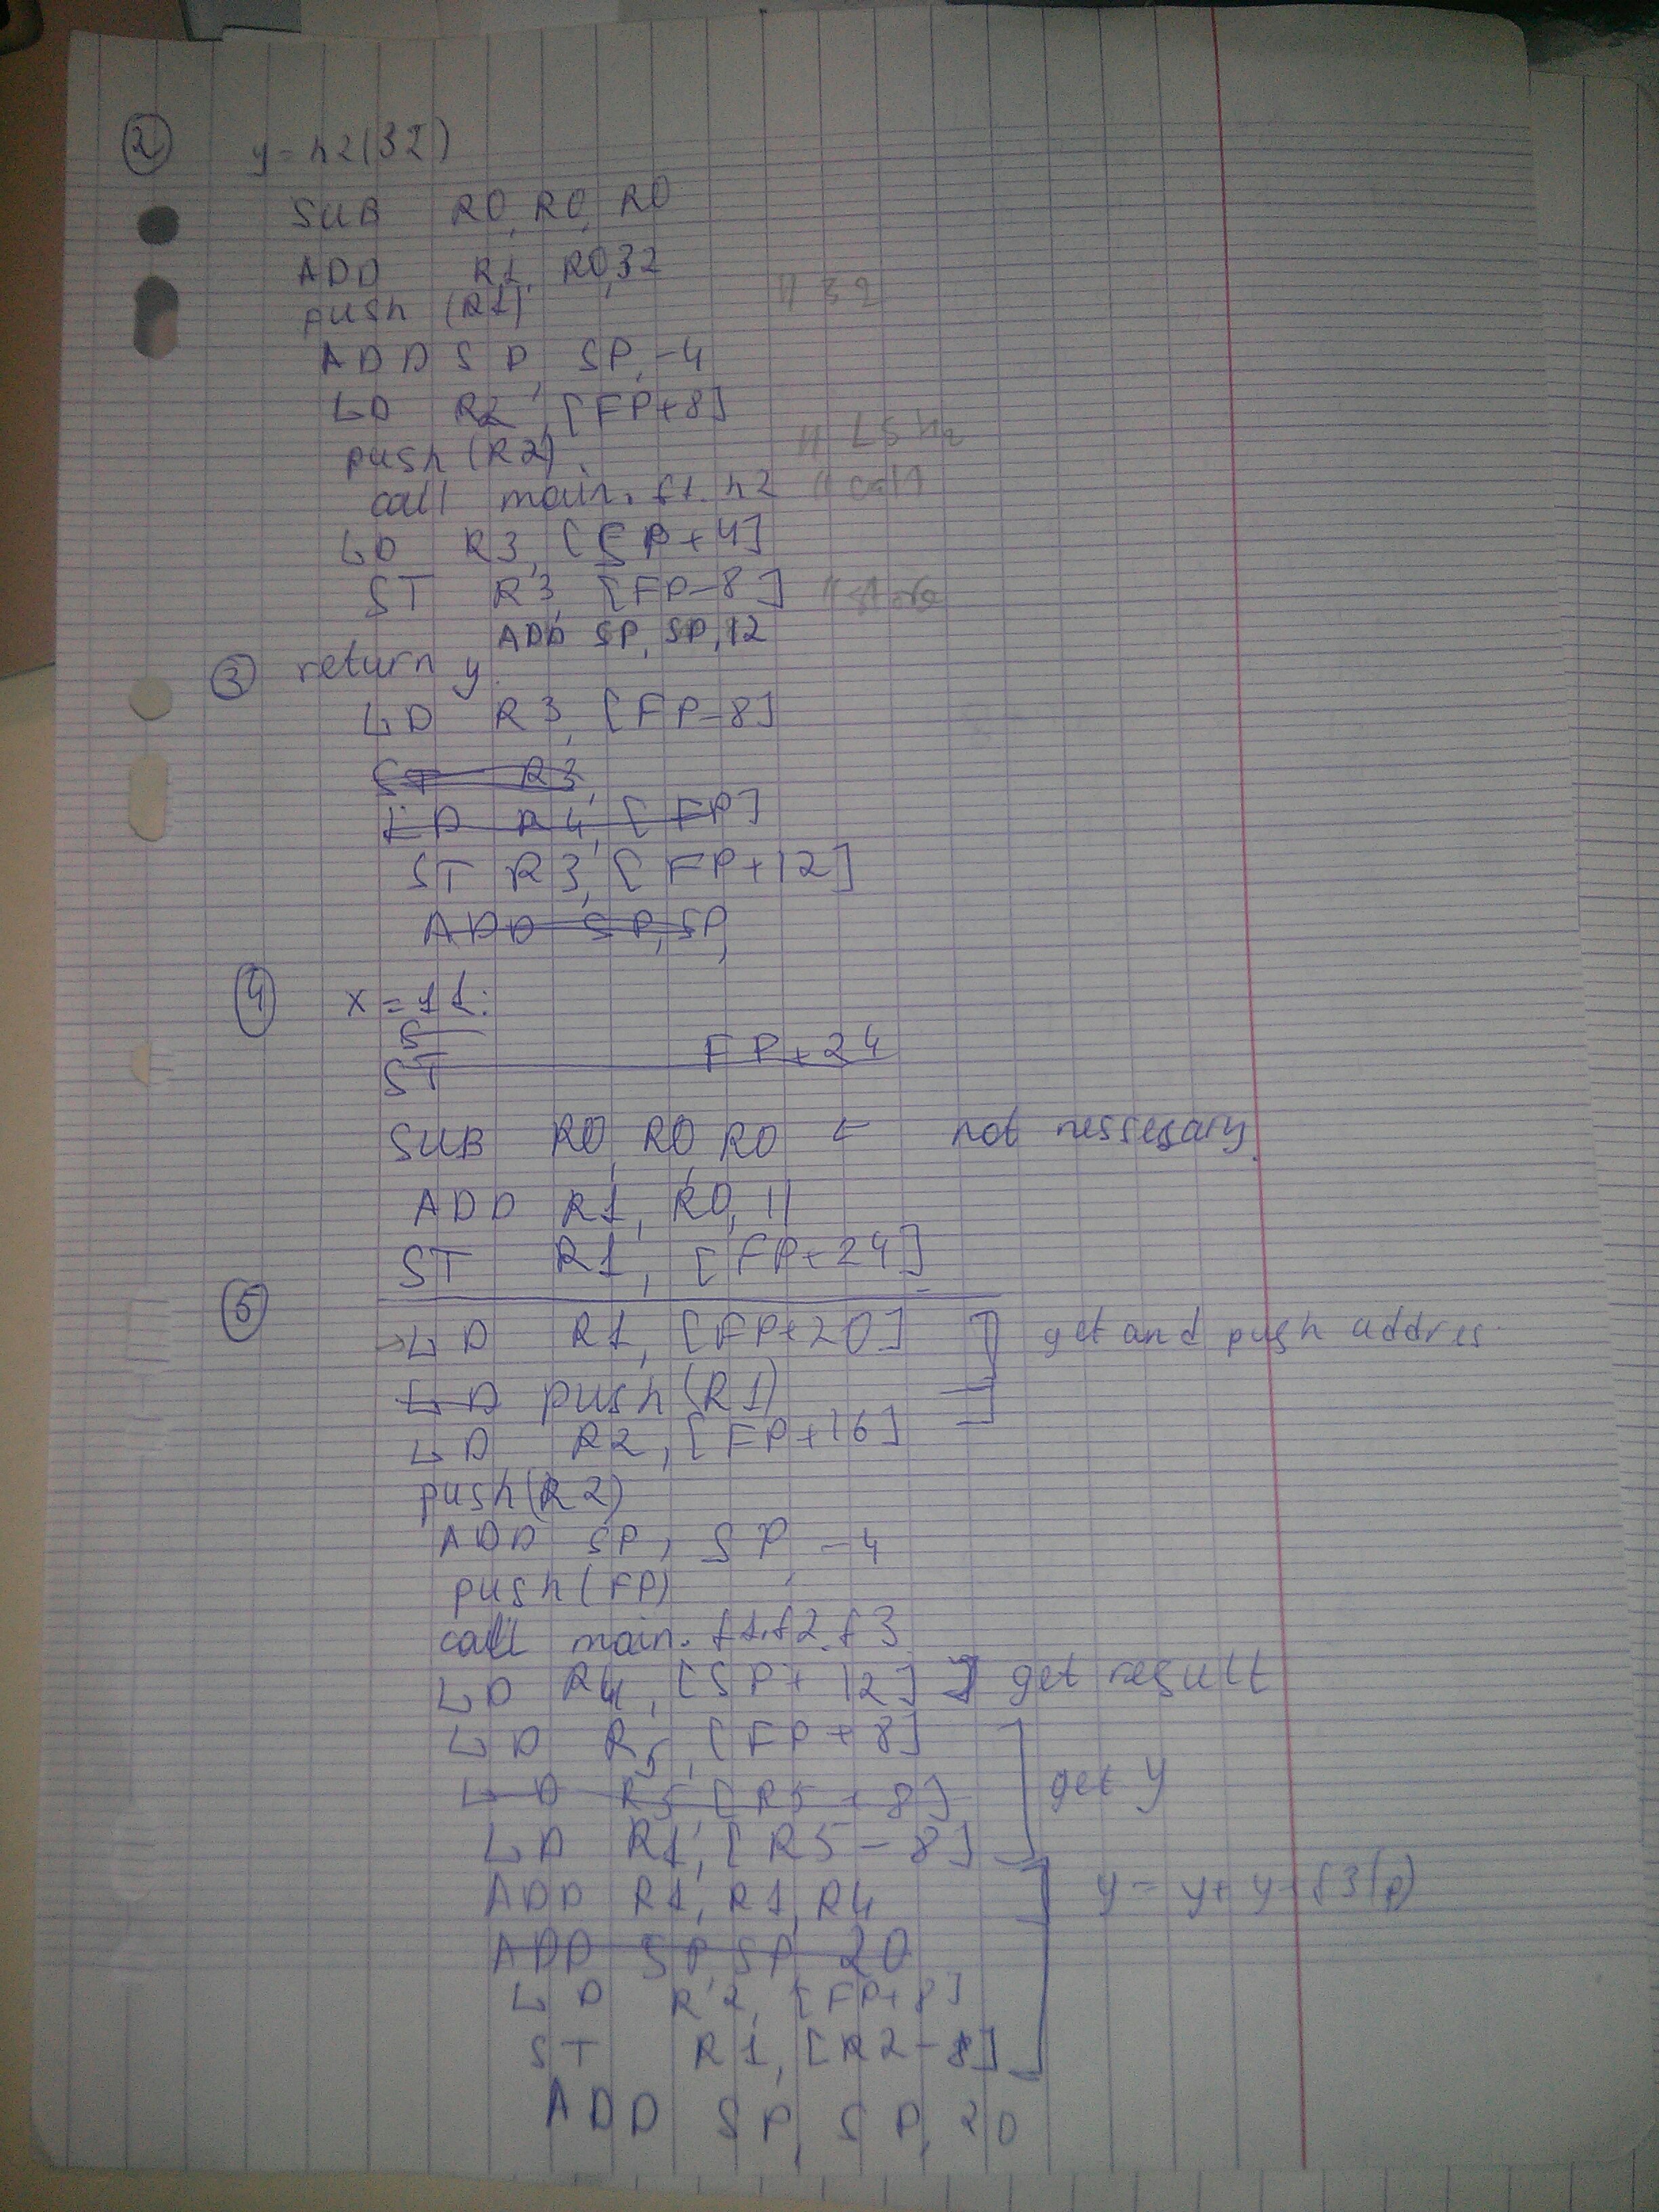 ② y = h2(32)
SUB R0, R0, R0
ADD R1, R0, 32
push (R1) // 32
ADD SP, SP, -4
LD R2, [FP+8]
push (R2) // LS h2
call main.f1.h2 // call
LD R3, [SP+4]
ST R3, [FP-8] // store
ADD SP, SP, 12
③ return y.
LD R3, [FP-8]
ST R3,
LD R4, [FP]
ST R3, [FP+12]
ADD SP, SP,
④ x = 11:
S
ST FP+24
SUB R0, R0, R0 ← not nessesary.
ADD R1, R0, 11
ST R1, [FP+24]
⑤ → LD R1, [FP+20] ] get and push addres.
LD push (R1)
LD R2, [FP+16]
push (R2)
ADD SP, SP, -4
push (FP)
call main.f1.f2.f3
LD R4, [SP+12] ] get result
LD R5, [FP+8]
LD R5, [R5+8] get y
LD R1, [R5-8]
ADD R1, R1, R4 y = y + y + f3(p)
ADD SP, SP, 20
LD R2, [FP+8]
ST R1, [R2-8]
ADD SP, SP, 20